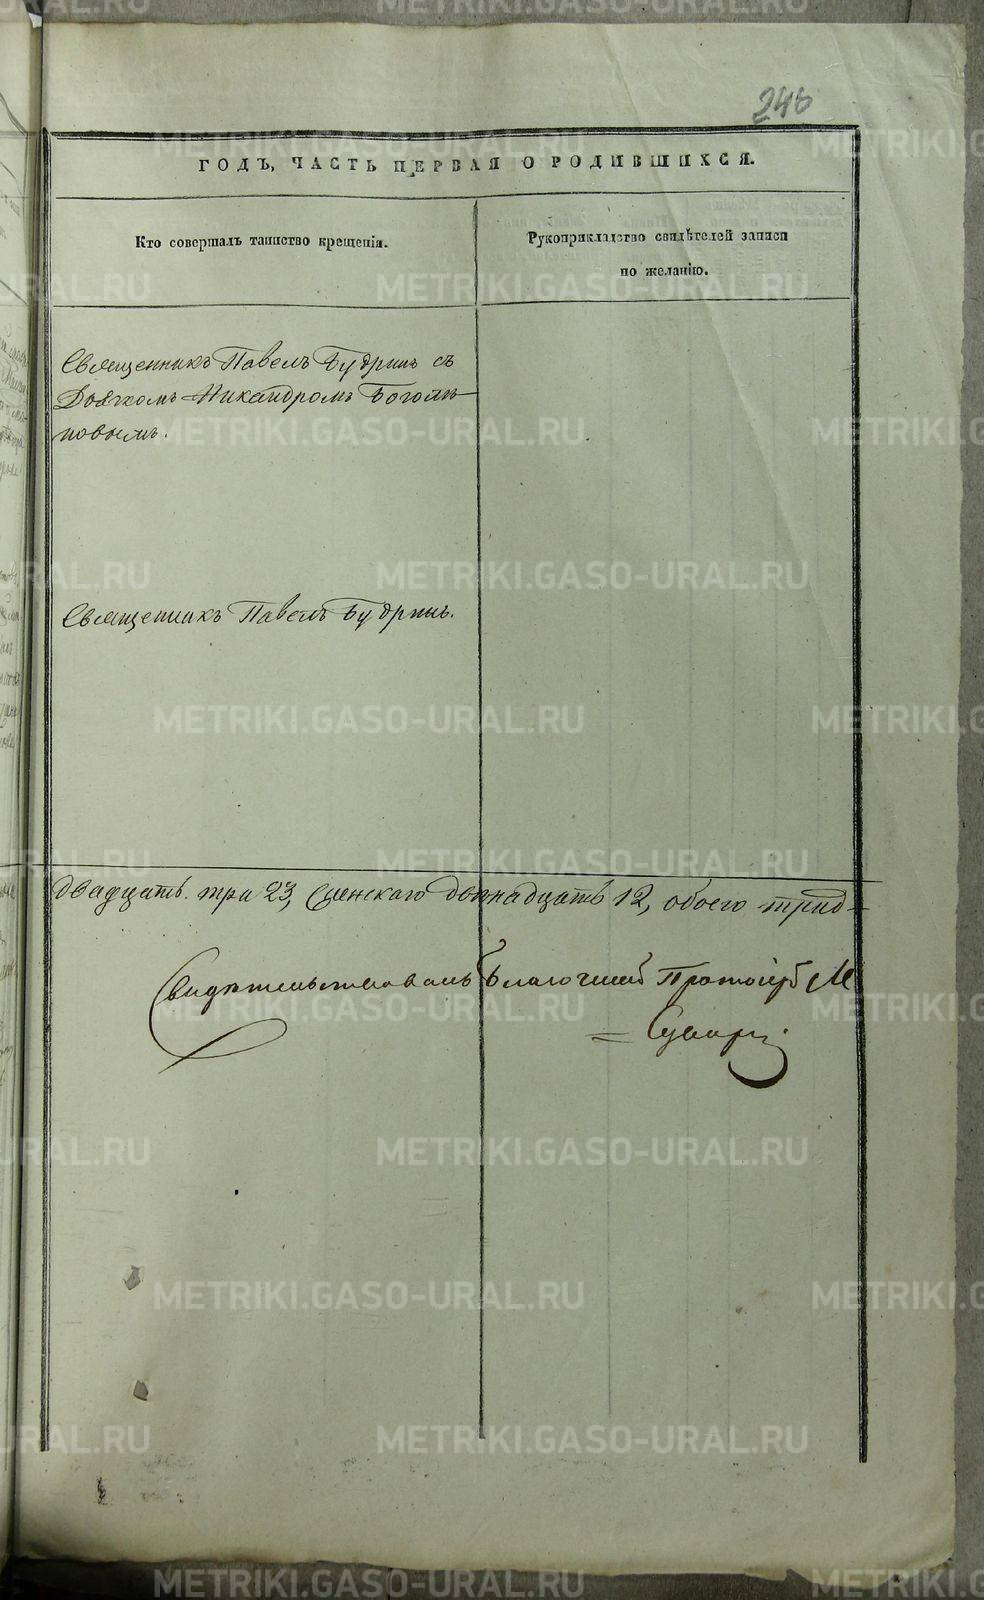 246
ГОДЪ, ЧАСТЬ ПЕРВАЯ О РОДИВШИХСЯ.
Кто совершалъ таинство крещенія.
Рукоприкладство свидѣтелей записи
по желанію.
Священникъ Павелъ Будринъ съ
Дьячкомъ Никандромъ Боголѣ-
повымъ.
Священникъ Павелъ Будринъ.
двадцать три 23, женскаго двѣнадцать 12, обоего трид-
Свидѣтельствовалъ Благочинный Протоіерей
METRIKI.GASO-URAL.RU